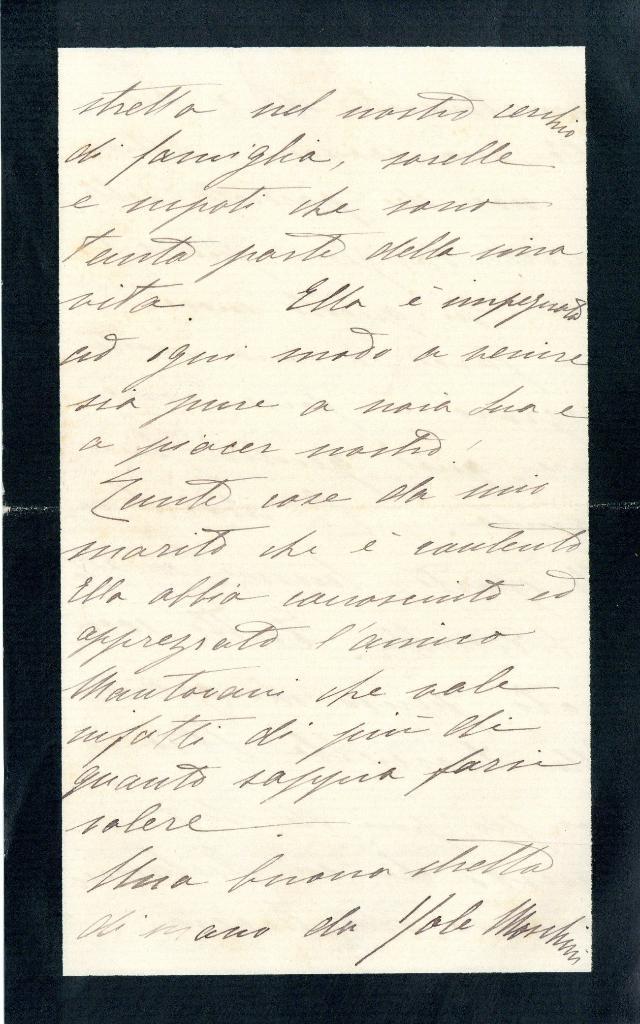 stretta nel nostro cerchio
di famiglia, sorelle
e nipoti che sono
tanta parte della mia
vita. Ella è impegnata
ad ogni modo a venire
sia pure a noia sua e
a piacer nostro!
Tante cose da mio
marito che è contento
Ella abbia conosciuto ed
apprezzato l'amico
Mantovani che vale
infatti di più di
quanto sappia farsi
valere
Una buona stretta
di mano da Iole Moschini